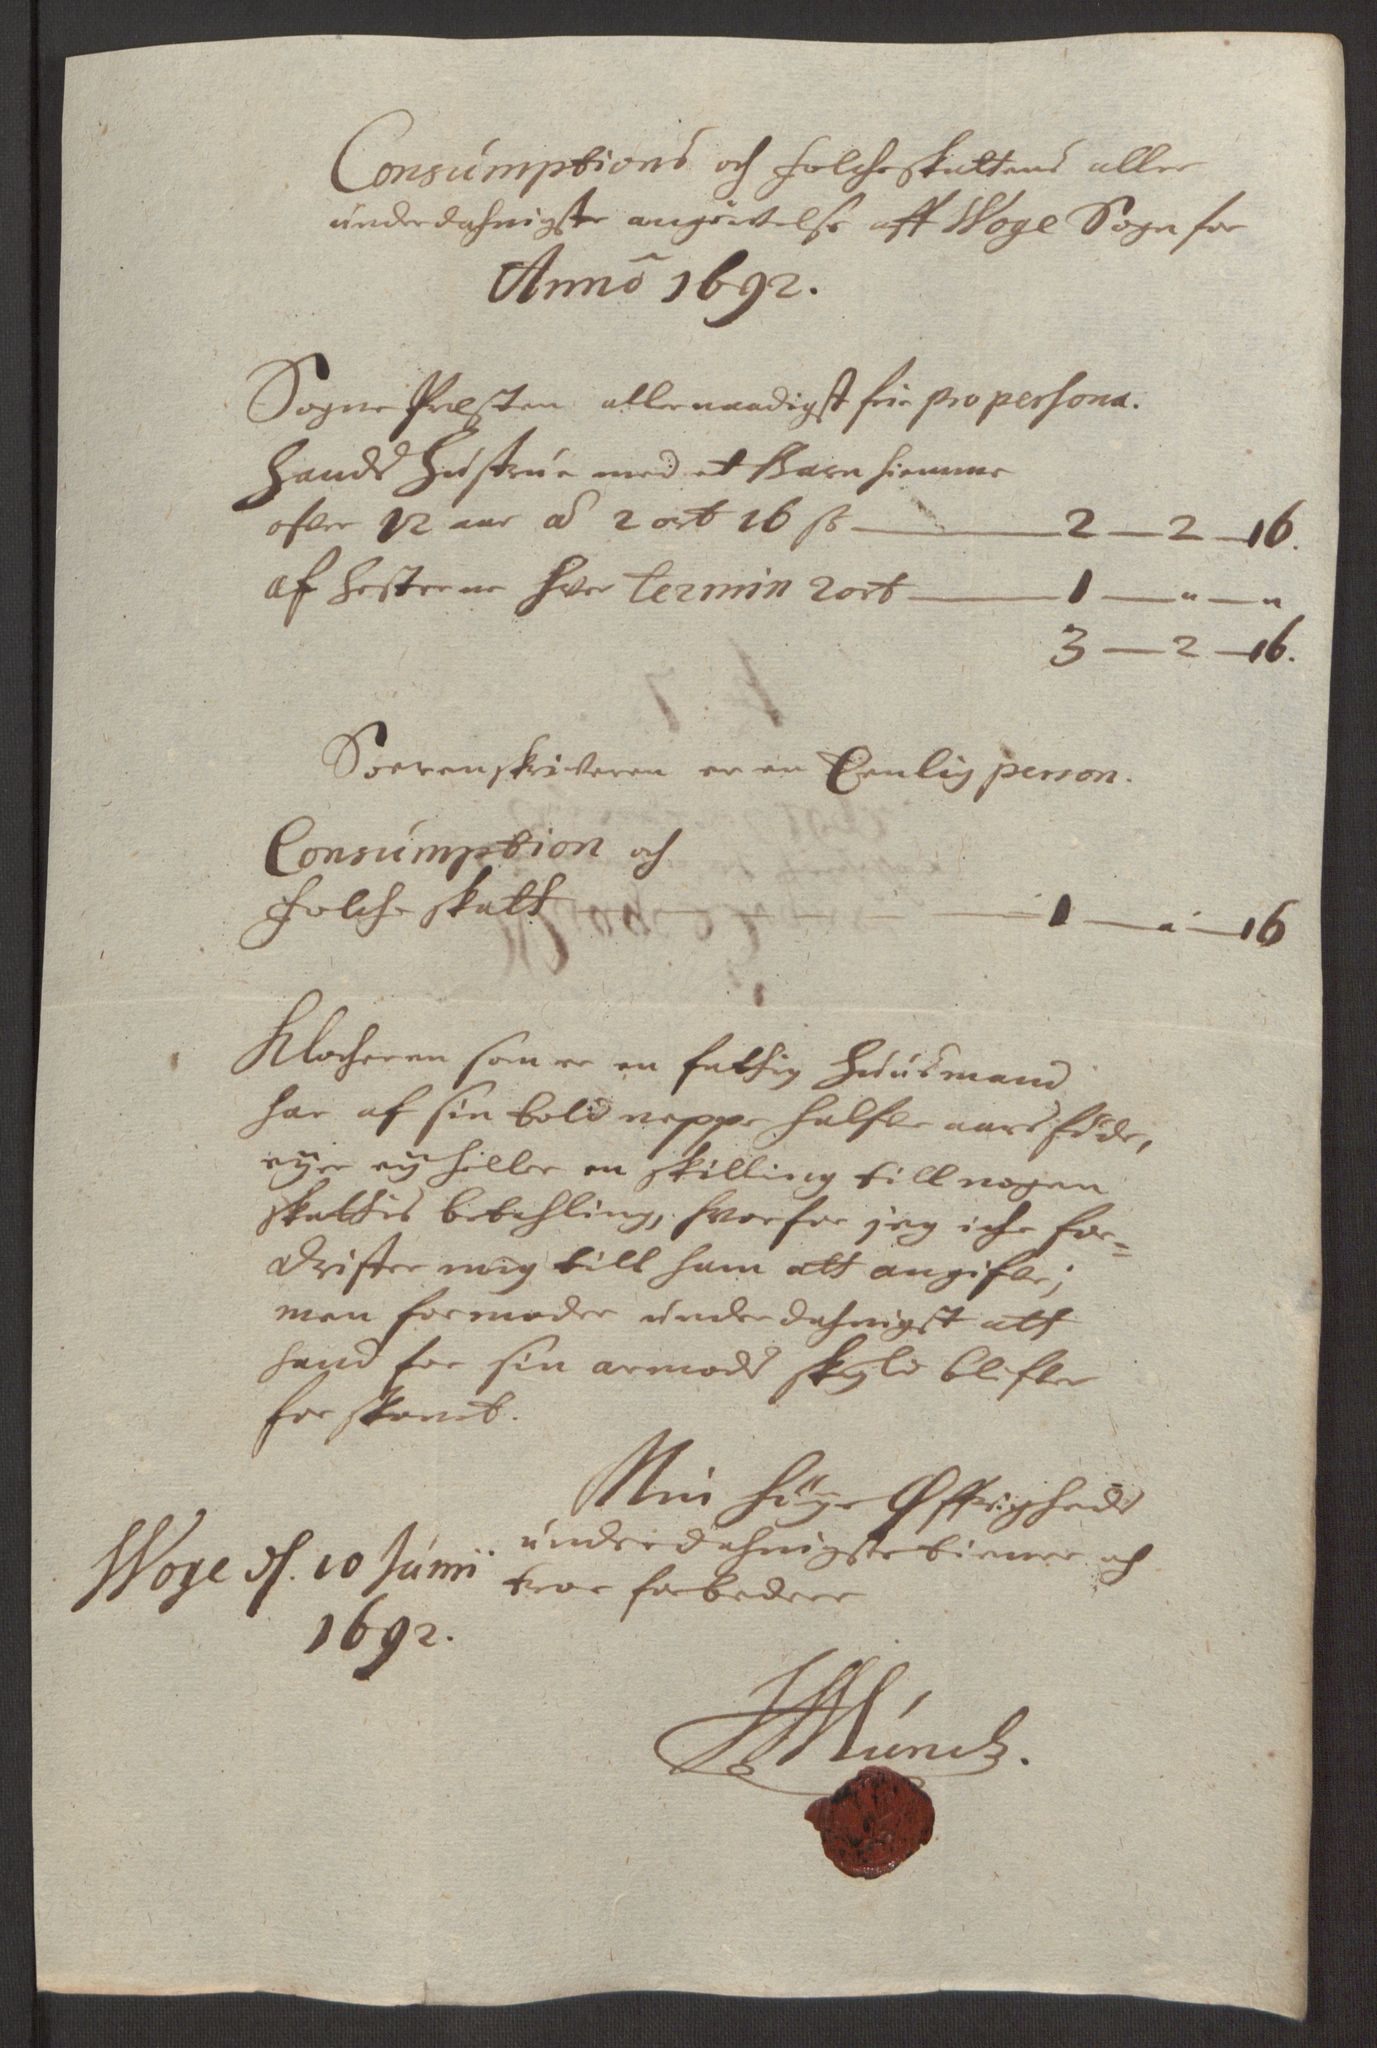 Consumptions och folcheskattens aller
underdahnigste angivelse aff Woge Sogn for
Anno 1692.
Sogne Præsten allernaadigst frie pro persona.
Hands Hustrue med et Barn hiemme
ofver 12 aar á 2 ort 16 ß — 2 — 2 — 16.
af hesterne hver termin 2 ort — 1 — " — "
3 — 2 — 16.
Sorenskriveren er en Eenlig person.
Consumption och
folche skatt — 1 — " — 16
Klocheren som er en fathig Huusmand
har af sin bold neppe halfve aars føde,
eyer ey heller en skilling till nogen
skattis betahling, hvorfor jeg iche for=
drister mig till ham att angifve;
men formoder underdahnigst att
hand for sin armods skyld blifver
forskont.
Min høye Øffrigheds
underdahnigste tiener och
troe forbedere
Woge d. 10 Junii
1692.
Munck.